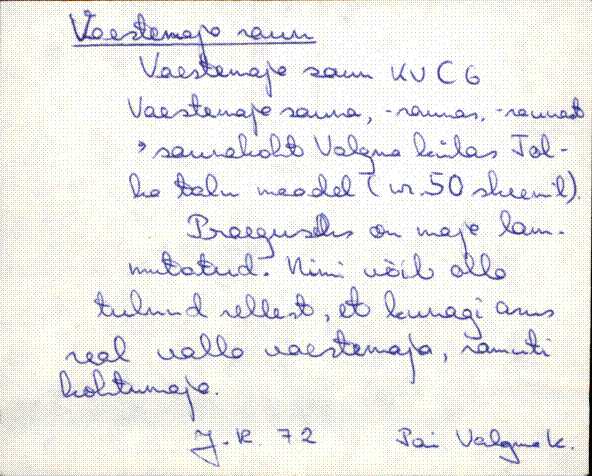 Vaestemaja saun
Vaestemaja saun KUCG
Vaestemaja sauna, -saunas, -saunast
saunakoht Valgma külas Tol-
ko talu maadel (nr. 50 skeemil).
Praeguseks on maja lam-
mutatud. Nimi võib olla
tulnud sellest, et kunagi asus
seal valla vaestemaja, samuti
kohtumaja.
J. K. 72 Pai Valgma k.